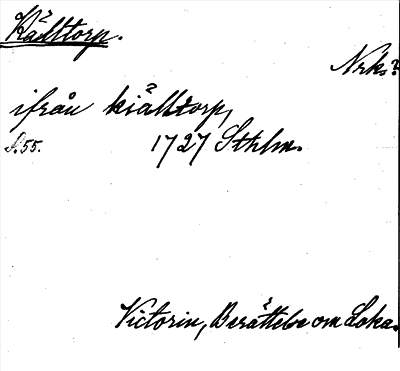 Källtorp.
Nrks?
ifrån kiälltorp,
S. 55. 1727 Sthlm.
Victorin, Berättelse om Loka.